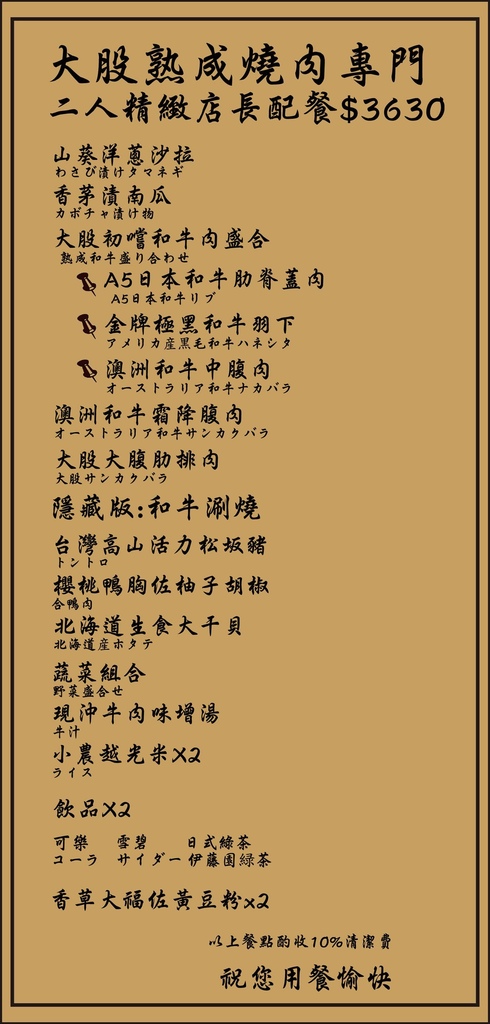 大股熟成燒肉專門
二人精緻店長配餐$3630
山葵洋蔥沙拉
わさび漬けタマネギ
香茅漬南瓜
カボチャ漬け物
大股初嚐和牛肉盛合
熟成和牛盛り合わせ
A5日本和牛肋脊蓋肉
A5日本和牛リブ
金牌極黑和牛羽下
アメリカ産黒毛和牛ハネシタ
澳洲和牛中腹肉
オーストラリア和牛ナカバラ
澳洲和牛霜降腹肉
オーストラリア和牛サンカクバラ
大股大腹肋排肉
大股サンカクバラ
隱藏版:和牛涮燒
台灣高山活力松坂豬
トントロ
櫻桃鴨胸佐柚子胡椒
合鴨肉
北海道生食大干貝
北海道産ホタテ
蔬菜組合
野菜盛合せ
現沖牛肉味增湯
牛汁
小農越光米X2
ライス
飲品X2
可樂 雪碧 日式綠茶
コーラ サイダー 伊藤園緑茶
香草大福佐黃豆粉x2
以上餐點酌收10%清潔費
祝您用餐愉快